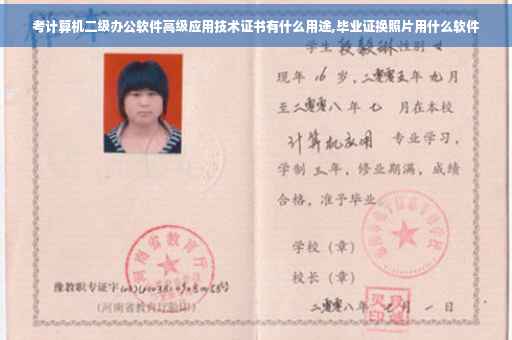 考计算机二级办公软件高级应用技术证书有什么用途,毕业证换照片用什么软件
学生 段毅琳 性别 女
现年 16 岁,二零零五年 九月
至二零零八年 七 月在本校
计算机应用 专业学习,
学制 三 年,修业期满,成绩
合格,准予毕业
学校(章)
河南省教育厅
校长(章)
豫教职专证字
(河南省教育厅验印)
二零零八年 月 一 日